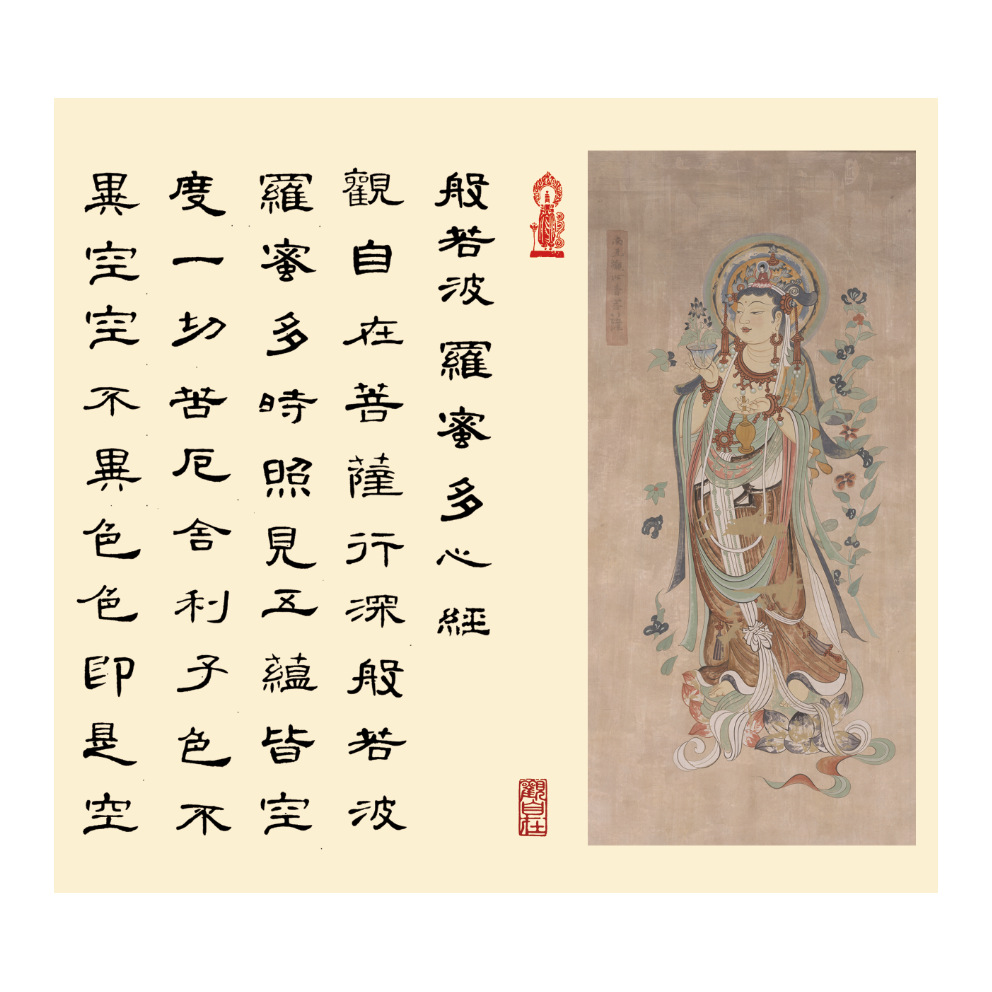 觀自在
般若波羅蜜多心經
觀自在菩薩行深般若波
羅蜜多時照見五蘊皆空
度一切苦厄舍利子色不
異空空不異色色即是空